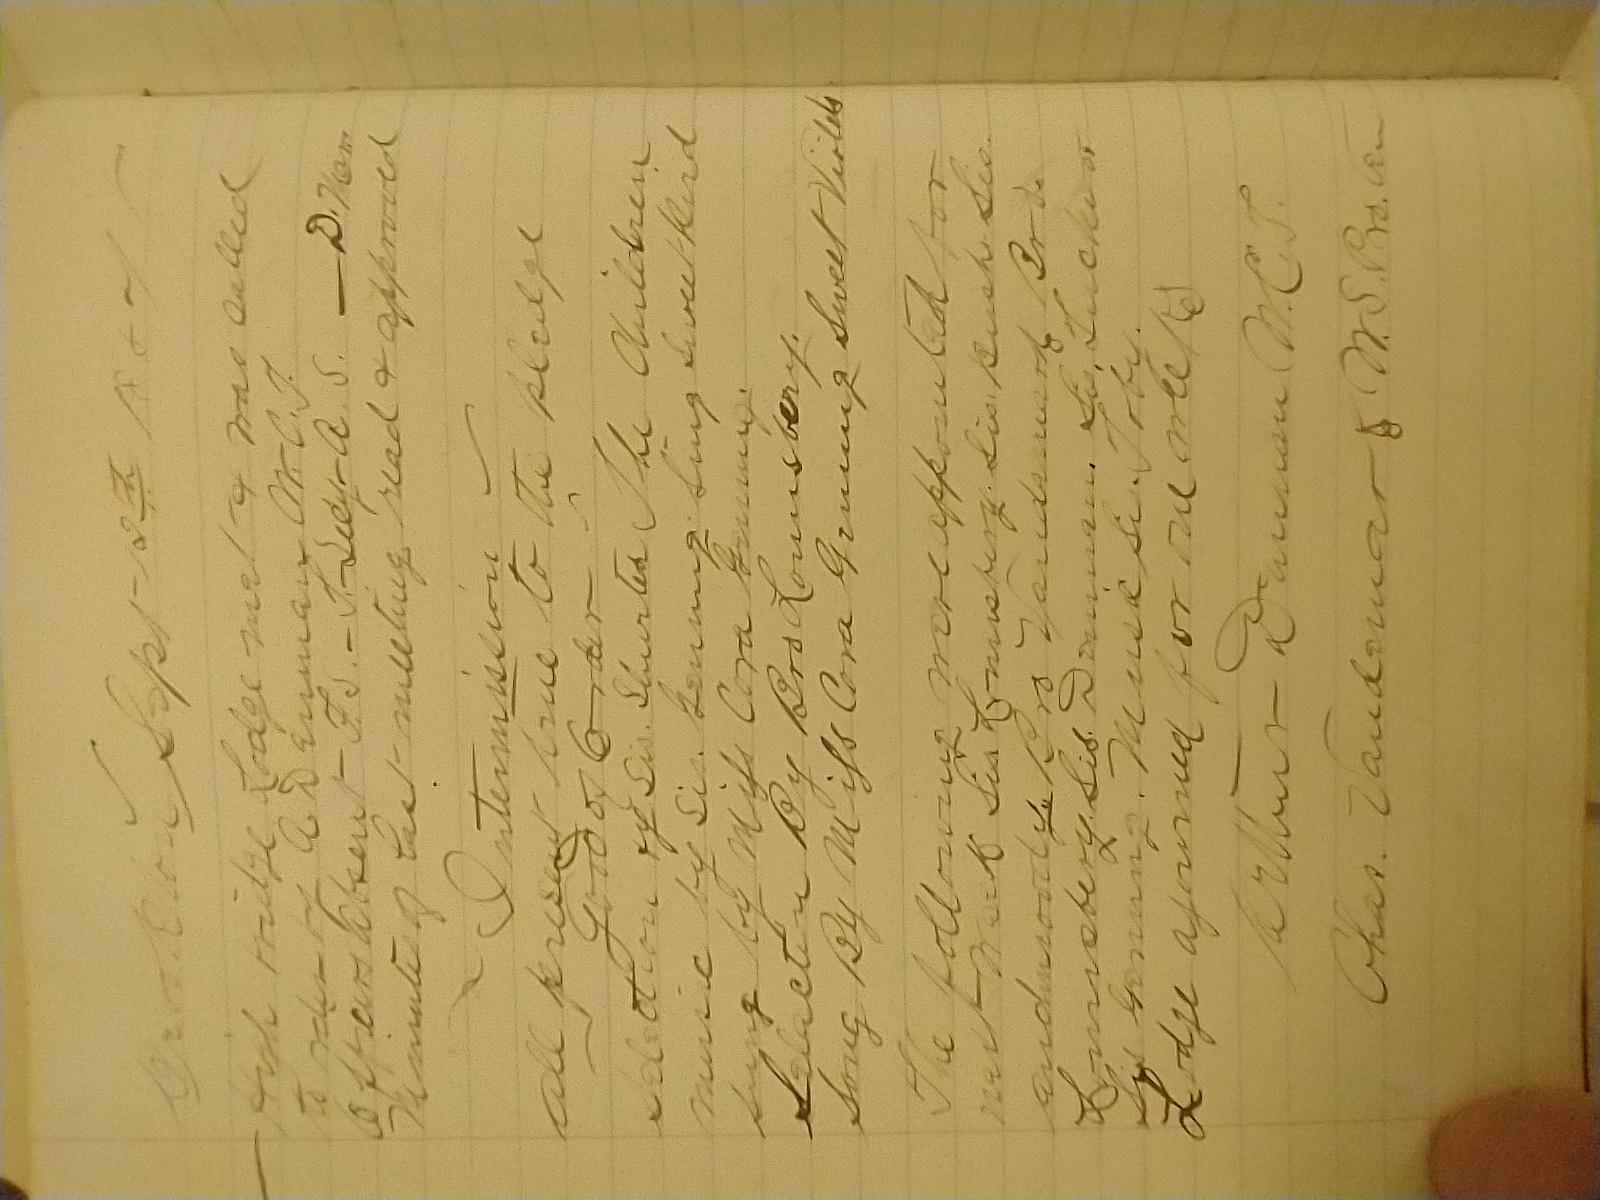 Sept 12th 188
High bridge Lodge met & was called
to order by A Denman W.C.T.
Officers Absent F.S. - T. - Secy - A. S. — D. Mar.
Minutes of last meeting read & approved
Intermission
all present true to the pledge
Good of Order
Selection by Sis. Shurter The Children
music by Sis. Genung. Sing Sweet Bird
sung by Miss Cora Genung.
Selection By Bro Lounsbery.
Song By Miss Cora Genung Sweet Violets
The following were appointed for
next Week Sis Lounsbery. Sis. Bush. Sis.
Bro Vandemark Bro.
Lounsbery. Sis. Denman. Sis.
Sis Genung. Music Sis. Toby.
Lodge ajourned for one week
Arthur Denman W.C.T.
Chas. Vandemark W.S. Pro. tem